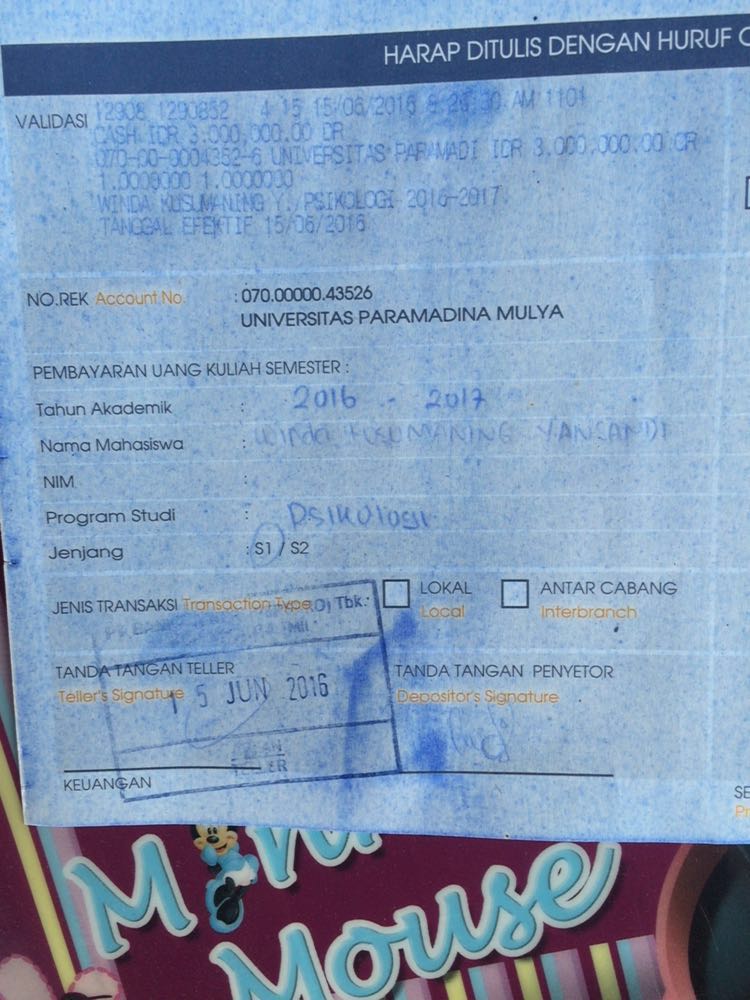 HARAP DITULIS DENGAN HURUF C
VALIDASI
12908 1290852 4 15 15/06/2016 8:26:30 AM 1101
CASH IDR 3,000,000.00 DR
070-00-0004352-6 UNIVERSITAS PARAMADI IDR 3,000,000.00 CR
1.0000000 1.0000000
WINDA KUSUMANING Y./PSIKOLOGI 2016-2017
TANGGAL EFEKTIF 15/06/2016
NO.REK Account No. : 070.00000.43526
UNIVERSITAS PARAMADINA MULYA
PEMBAYARAN UANG KULIAH SEMESTER :
Tahun Akademik : 2016 - 2017
Nama Mahasiswa : WINDA KUSUMANING
NIM :
Program Studi : PSIKOLOGI
Jenjang : S1 / S2
JENIS TRANSAKSI Transaction Type
Tbk.
LOKAL
Local
ANTAR CABANG
Interbranch
TANDA TANGAN TELLER
Teller's Signature
15 JUN 2016
TANDA TANGAN PENYETOR
Depositor's Signature
TELLER
KEUANGAN
SE
Pr
Minnie
Mouse